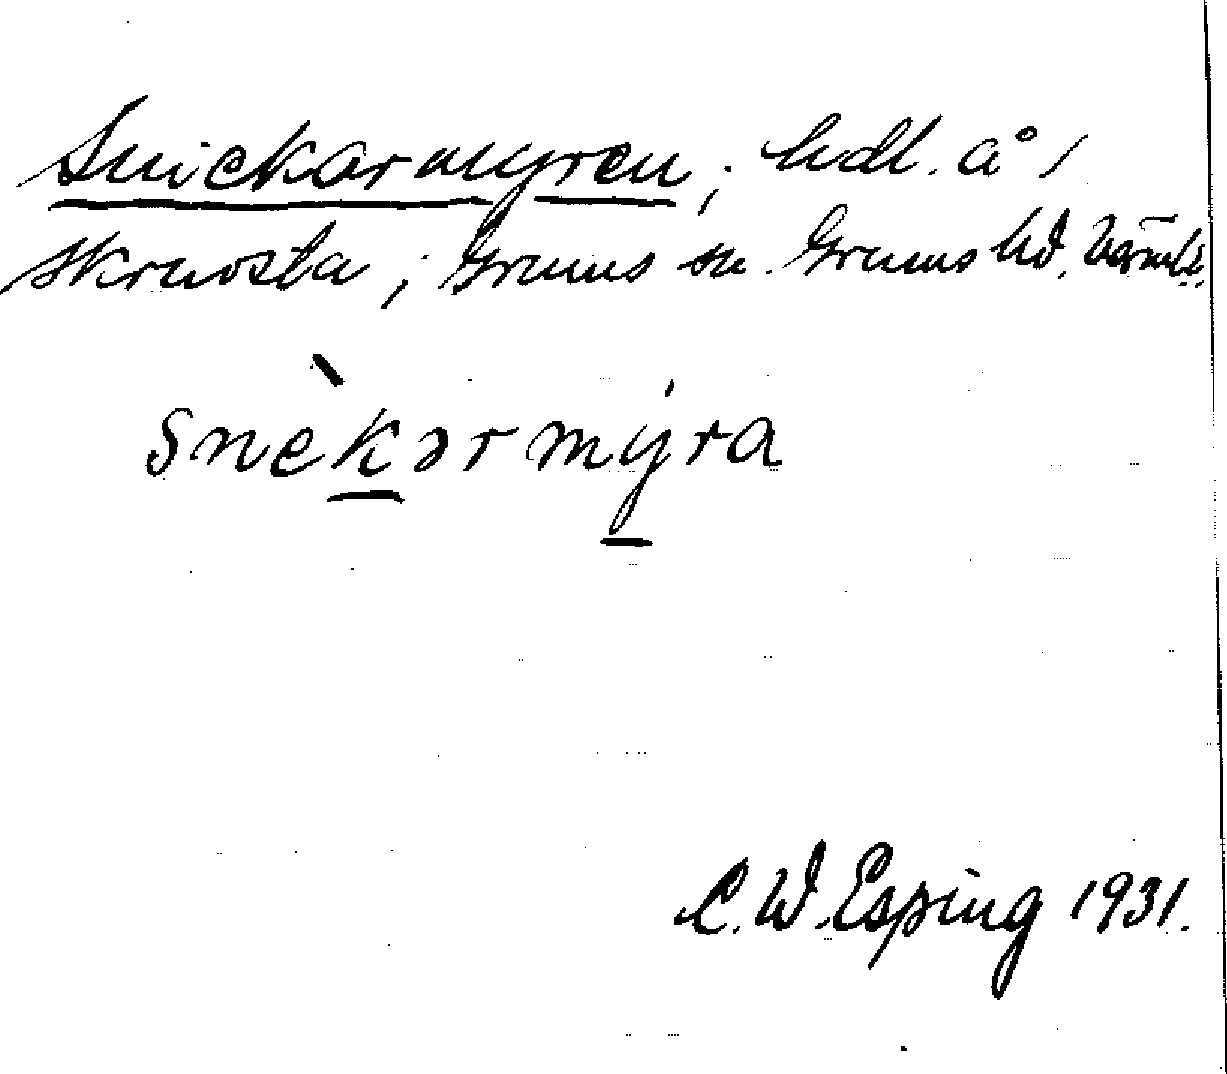 Snickarmyren; hdl. å 1
Skruvsta; Grums sn. Grums hd, Värml.
snèkərmýra
C. W. Esping 1931.